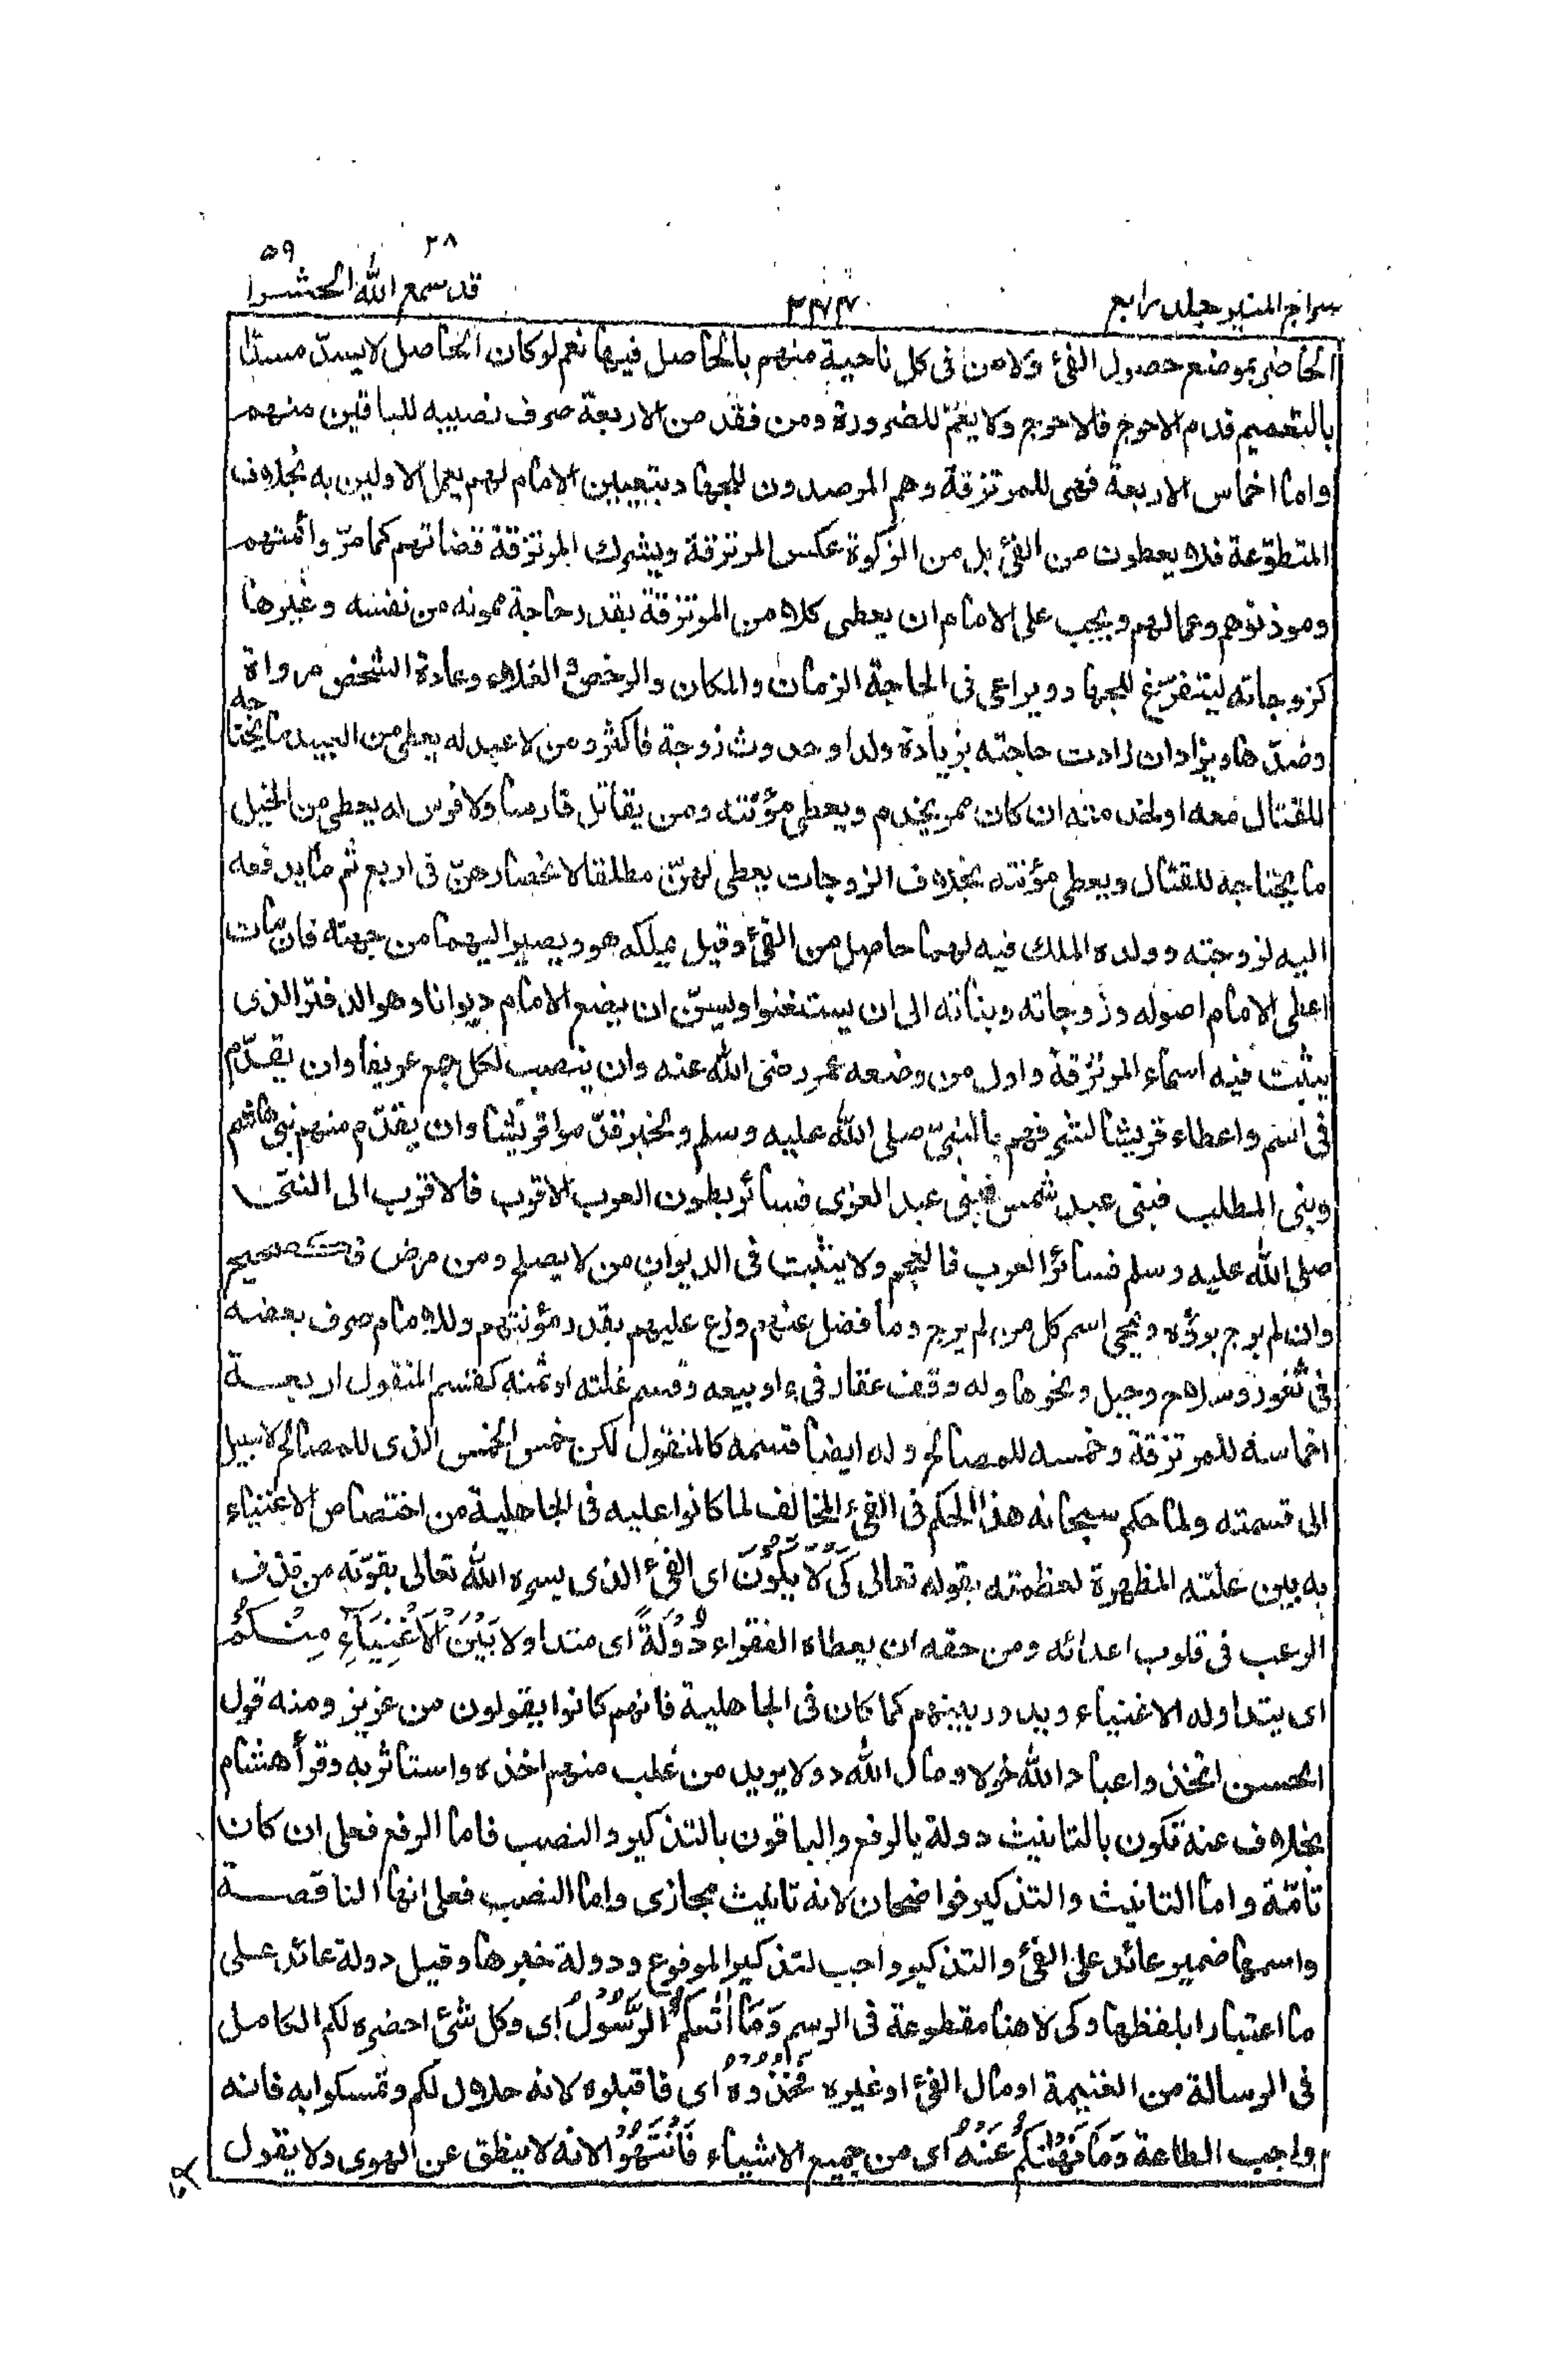 ٢٨ ٥٩
سراج المنير جلد رابع ٢٤٤ قد سمع الله الحشر
الحاضر بموضع حصول الفئ ولا من فى كل ناحية منهم بالحاصل فيها نعم لو كان الحاصل لا يسدّ مسدّا
بالتعميم قدم الاحوج فالاحوج ولا يعمّ للضرورة ومن فقد من الاربعة صرف نصيبه للباقين منهم
واما اخماس الاربعة فهى للمرتزقة وهم المرصدون للجهاد بتعيين الامام لهم يعمل الاولين به بخلاف
المتطوّعة فلا يعطون من الفئ بل من الزكوة عكس المرتزقة ويشرك المرتزقة قضاتهم كما مرّ وائمتهم
وموذنوهم وعمالهم ويجب على الامام ان يعطى كلا من المرتزقة بقدر حاجة ممونه من نفسه وغيرها
كزوجاته ليتفرّغ للجهاد ويراعى فى الحاجة الزمان والمكان والرخص والغلاء وعادة الشخص مرواة
وضدّها ويزاد ان زادت حاجته بزيادة ولد او حدوث زوجة فاكثر ومن لا عبد له يعطى من العبيد ما يحتاجه
للقتال معه او لخدمته ان كان ممن يخدم ويعطى مؤنته ومن يقاتل فارسا ولا فرس له يعطى من الخيل
ما يحتاجه للقتال ويعطى مؤنته بخلاف الزوجات يعطى لهنّ مطلقا لانحصارهنّ فى اربع ثم ما يدفعه
اليه لزوجته وولده الملك فيه لهما حاصل من الفئ وقيل يملكه هو ويصير اليهما من جهته فان مات
اعطى الامام اصوله وزوجاته وبناته الى ان يستغنوا ويسنّ ان يضع الامام ديوانا وهو الدفتر الذى
يثبت فيه اسماء المرتزقة واول من وضعه عمر رضى الله عنه وان ينصب لكل جمع عريفا وان يقدّم
فى اسم واعطاء قريشا لشرفهم بالنبىّ صلى الله عليه وسلم ولخبر قدّموا قريشا وان يقدّم منهم بنى هاشم
وبنى المطلب فبنى عبد شمس فبنى عبد العزى فسائر بطون العرب الاقرب فالاقرب الى النبىّ
صلى الله عليه وسلم فسائر العرب فالعجم ولا يثبت فى الديوان من لا يصلح ومن مرض فكصحيح
وان لم يرج برؤه ويمحى اسم كل من لم يرج وما فضل عنهم وزع عليهم بقدر مؤنتهم وللامام صرف بعضه
فى ثغور وسلاح وخيل ونحوها وله وقف عقار فى ء او بيعه وقسم غلته او ثمنه كقسم المنقول اربعة
اخماسه للمرتزقة وخمسه للمصالح وله ايضا قسمه كالمنقول لكن خمس الخمس الذى للمصالح لا سبيل
الى قسمته ولما حكم سبحانه هذا الحكم فى الفئ المخالف لما كانوا عليه فى الجاهلية من اختصاص الاغنياء
به بين علته المظهرة لعظمته بقوله تعالى كَىْ لَا يَكُوْنَ اى الفئ الذى يسره الله تعالى بقوّته من قذف
الرعب فى قلوب اعدائه ومن حقه ان يعطاه الفقراء دُوْلَةً اى متداولا بَيْنَ الْاَغْنِيَآءِ مِنْكُمْ
اى يتداوله الاغنياء ويدور بينهم كما كان فى الجاهلية فانهم كانوا يقولون من عزيز ومنه قول
الحسن اتخذوا عباد الله خولا ومال الله دولا يريد من غلب منهم اخذه واستاثر به وقرأ هشام
بخلاف عنه تكون بالتانيث دولة بالرفع والباقون بالتذكير والنصب فاما الرفع فعلى ان كان
تامّة واما التانيث والتذكير فواضحان لانه تانيث مجازى واما النصب فعلى انها الناقصة
واسمها ضمير عائد على الفئ والتذكير واجب لتذكير المرفوع ودولة خبرها وقيل دولة عائد على
ما اعتبارا بلفظها وكى لا هنا مقطوعة فى الرسم وَمَآ اٰتٰىكُمُ الرَّسُوْلُ اى وكل شئ احضره لكم الكامل
فى الرسالة من الغنيمة او مال الفئ او غيره فَخُذُوْهُ اى فاقبلوه لانه حلال لكم وتمسكوا به فانه
واجب الطاعة وَمَا نَهٰىكُمْ عَنْهُ اى من جميع الاشياء فَانْتَهُوْا لانه لا ينطق عن الهوى ولا يقول